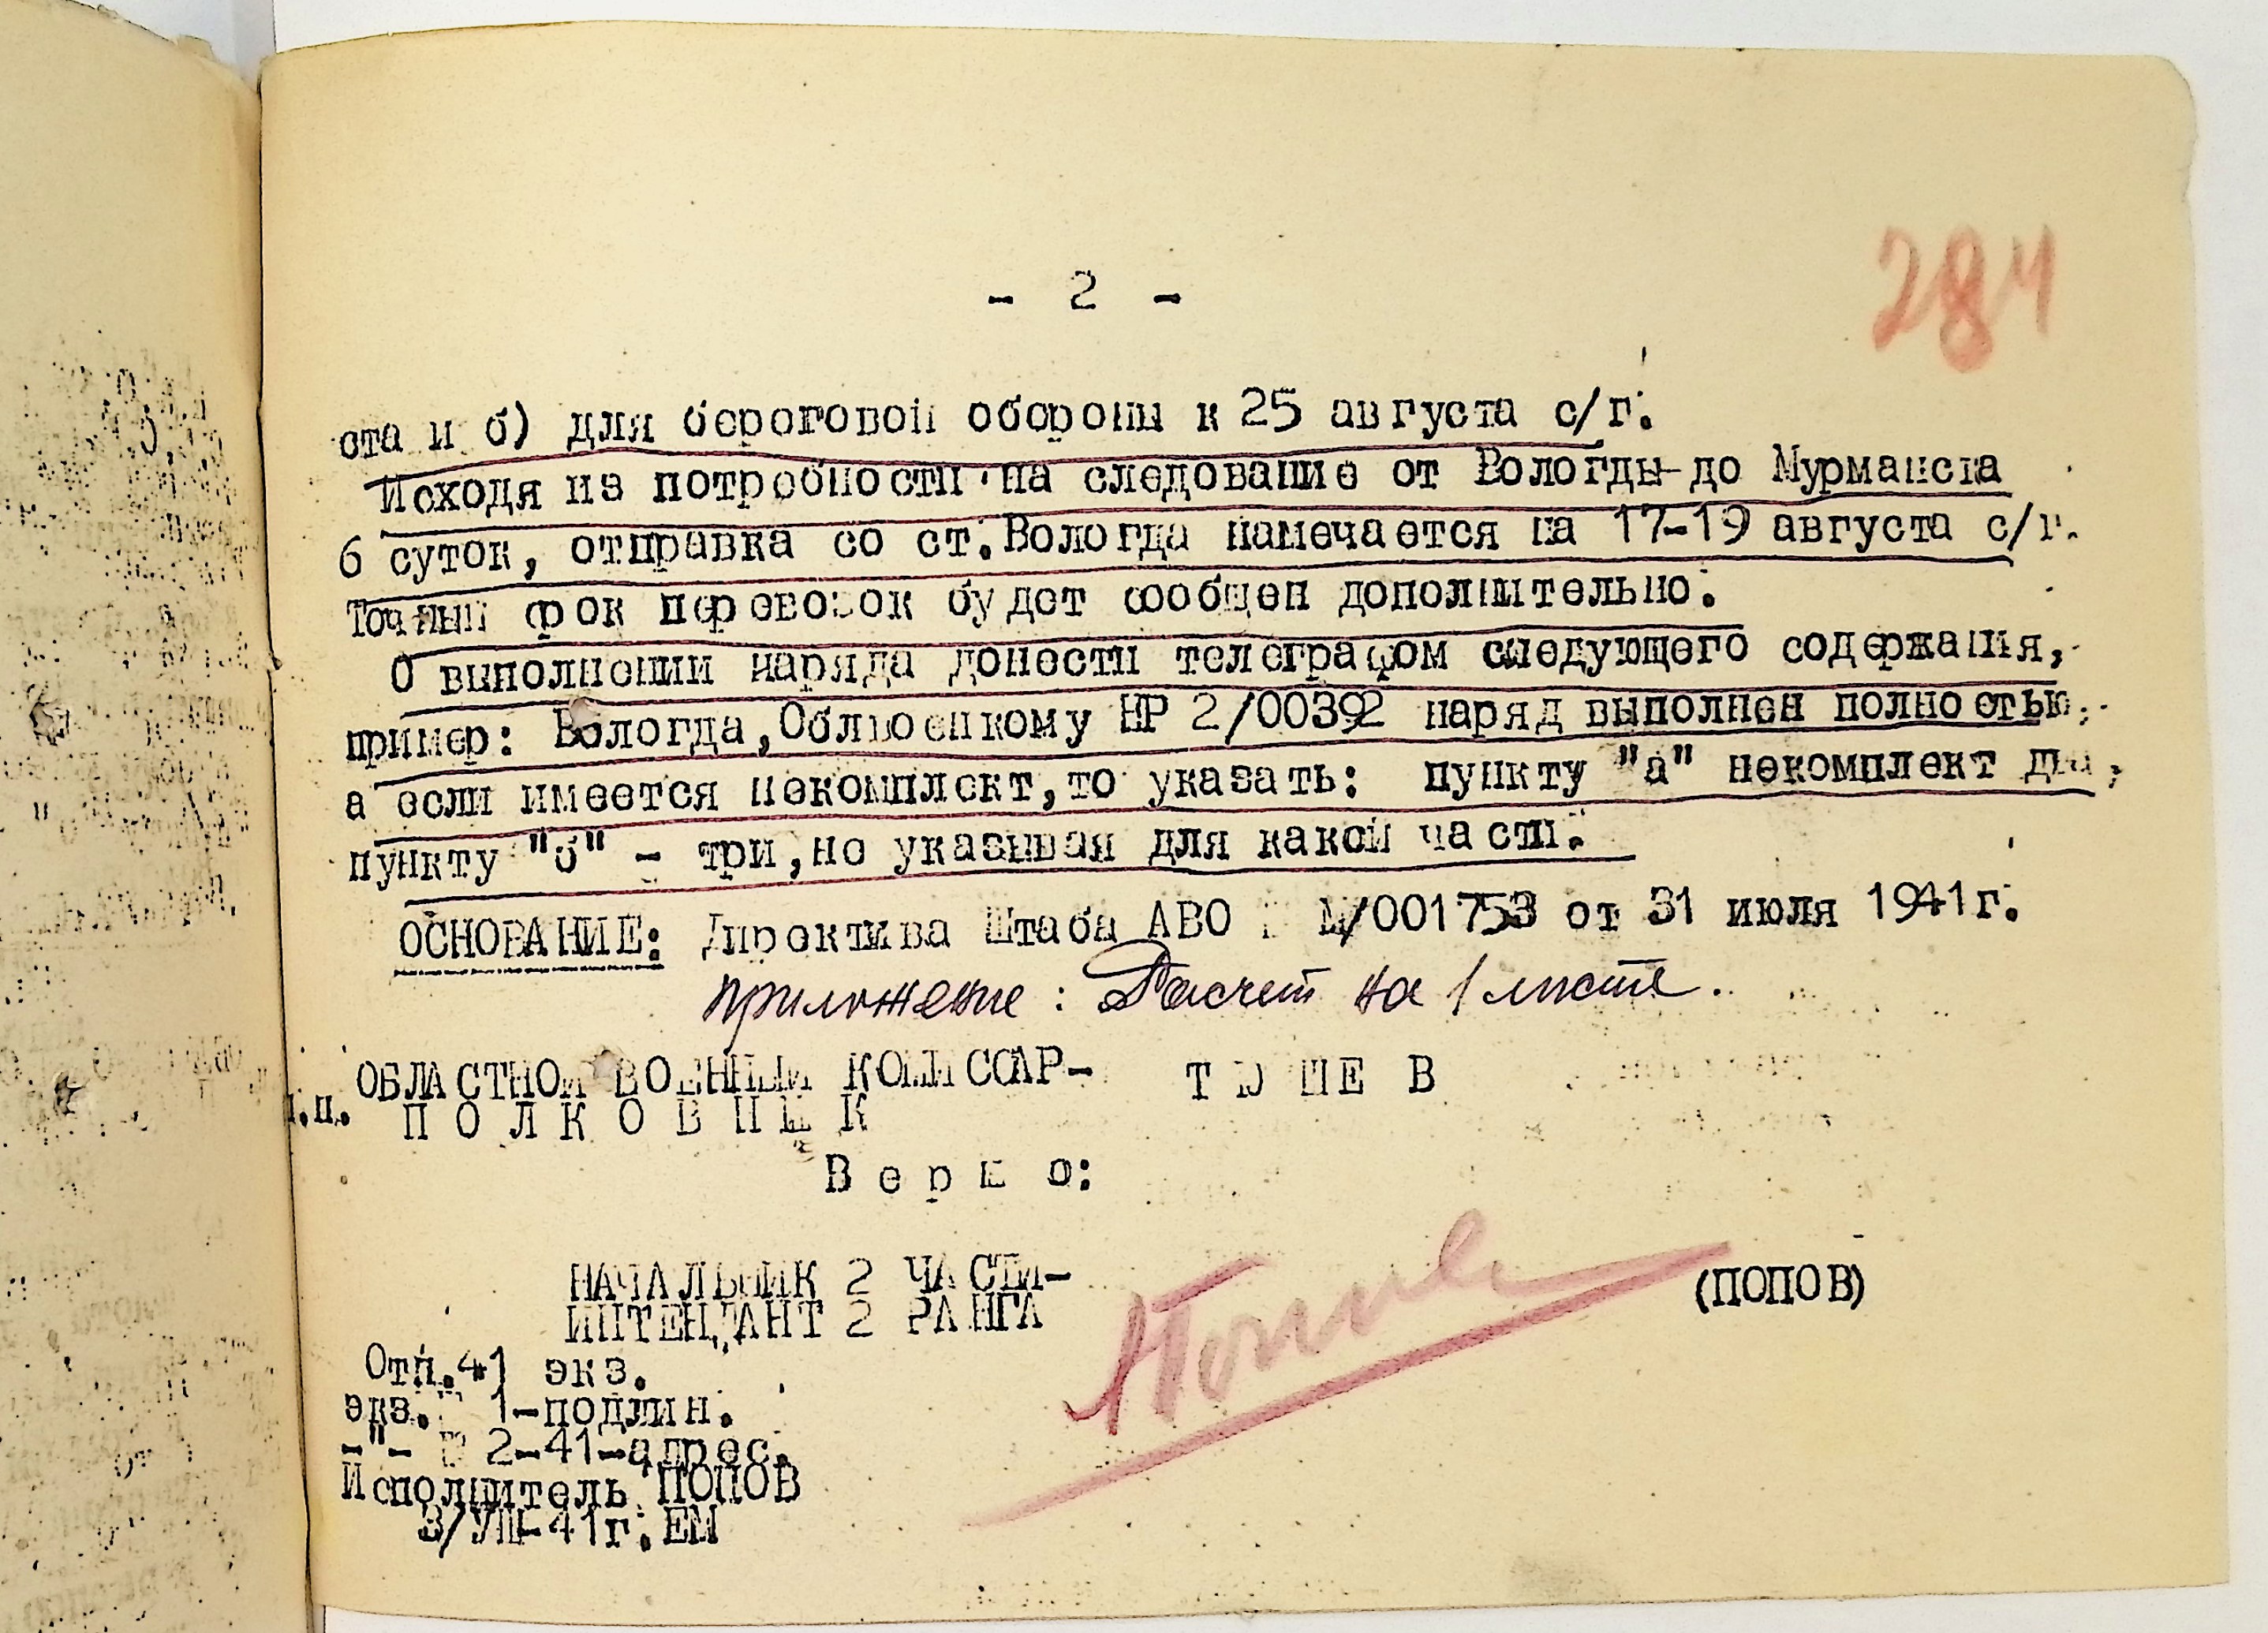 284
- 2 -
ста и б) для береговой обороны к 25 августа с/г.
Исходя из потребности на следование от Вологды до Мурманска
6 суток, отправка со ст.Вологда намечается на 17-19 августа с/г.
Точный срок перевозок будет сообщен дополнительно.
О выполнении наряда донести телеграфом следующего содержания,
пример: Вологда,Облвоенкому НР 2/00392 наряд выполнен полностью,
а если имеется некомплект,то указать: пункту "а" некомплект два,
пункту "б" - три,но указывая для какой части.
ОСНОВАНИЕ: Директива Штаба АВО М/001753 от 31 июля 1941г.
приложение: Расчет на 1 листе.
ОБЛАСТНОЙ ВОЕННЫЙ КОМИССАР-
п.п. ПОЛКОВНИК
Верно:
НАЧАЛЬНИК 2 ЧАСТИ-
ИНТЕНДАНТ 2 РАНГА (ПОПОВ)
Отп.41 экз.
экз. 1-подлин.
-"- 2-41-адрес.
Исполнитель ПОПОВ
3/УШ-41г. ЕМ